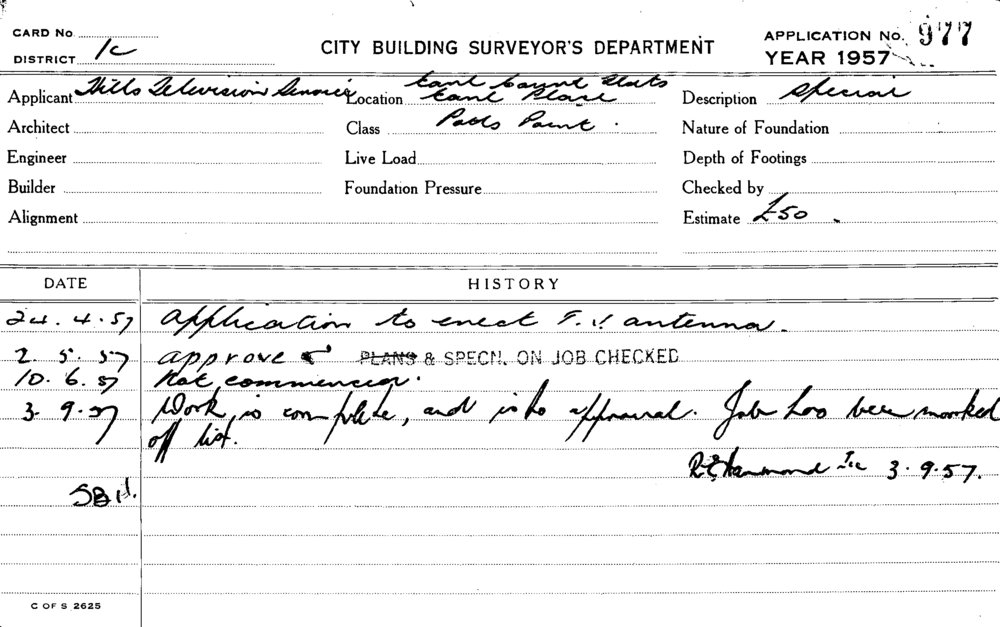 CARD No.
DISTRICT 1c
CITY BUILDING SURVEYOR'S DEPARTMENT
APPLICATION No. 977
YEAR 1957
Applicant Hills Television Service
Location Earl Court Flats
Earl Place
Description Special
Architect
Class Potts Point.
Nature of Foundation
Engineer
Live Load
Depth of Footings
Builder
Foundation Pressure
Checked by
Alignment
Estimate £50.
DATE HISTORY
24.4.57 Application to erect T.V. antenna.
2.5.57 approve PLANS & SPECN. ON JOB CHECKED
10.6.57 Not commenced.
3.9.57 Work is complete, and is to approval. Job has been marked
off list.
Hammond 3.9.57.
C OF S 2625